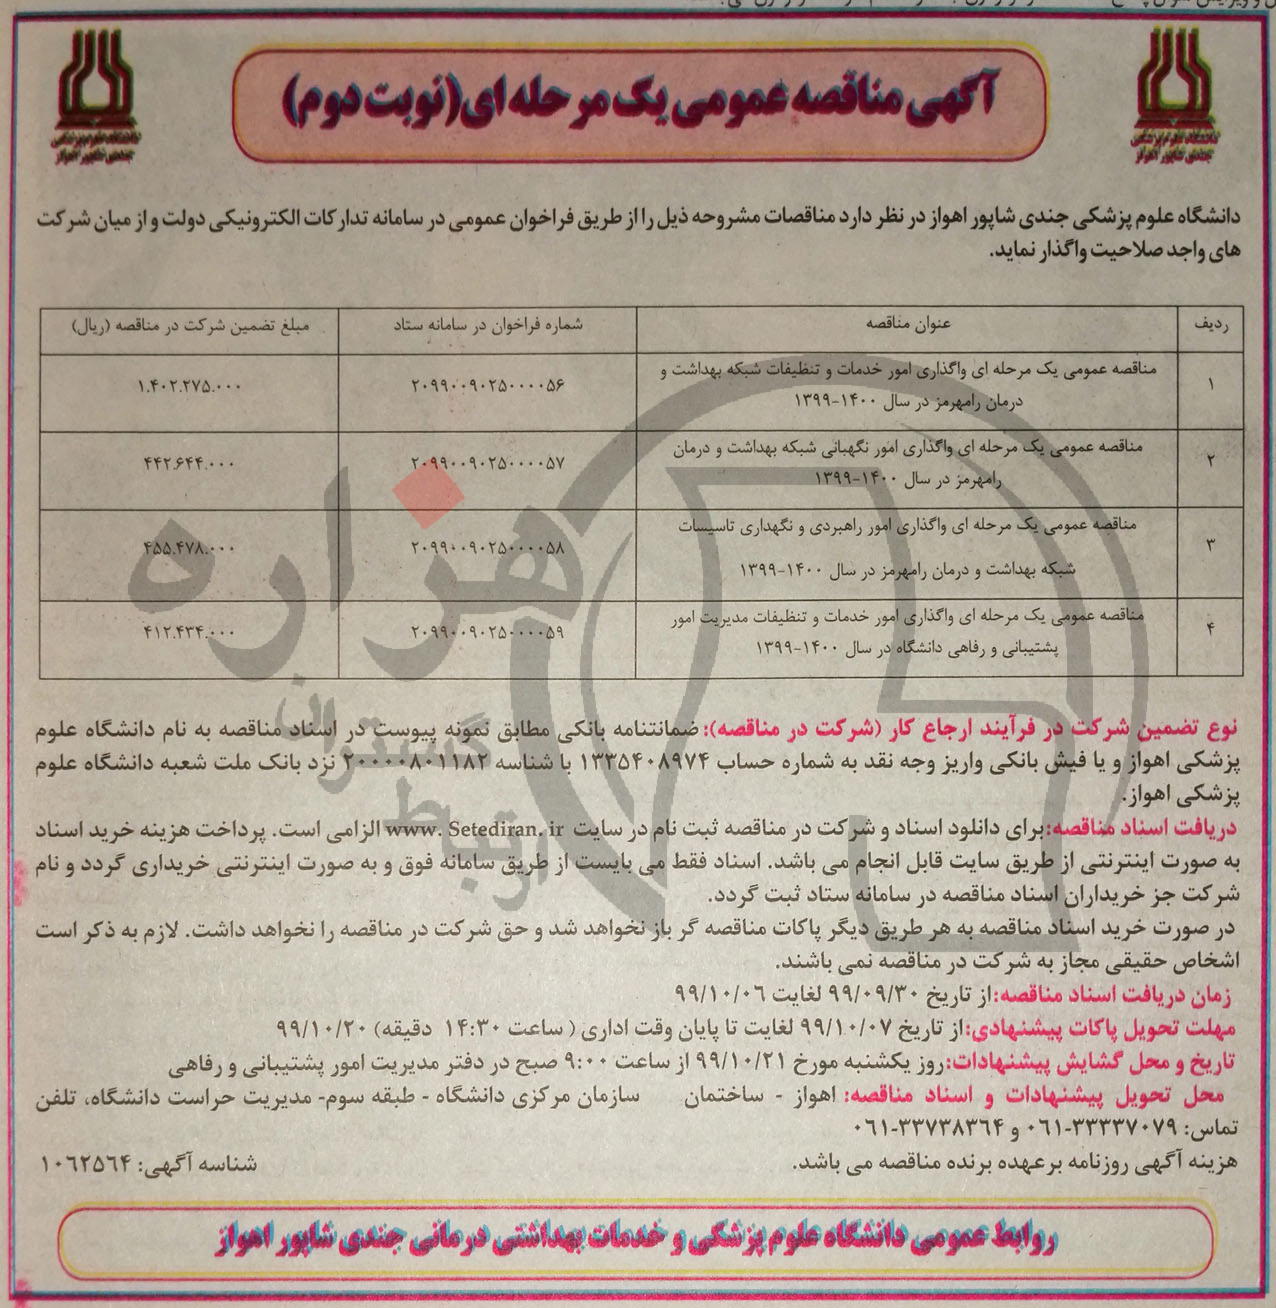 آگهی مناقصه عمومی یک مرحله ای(نوبت دوم)
دانشگاه علوم پزشکی
جندی شاپور اهواز
دانشگاه علوم پزشکی
جندی شاپور اهواز
دانشگاه علوم پزشکی جندی شاپور اهواز در نظر دارد مناقصات مشروحه ذیل را از طریق فراخوان عمومی در سامانه تدارکات الکترونیکی دولت و از میان شرکت
های واجد صلاحیت واگذار نماید.
ردیف عنوان مناقصه شماره فراخوان در سامانه ستاد مبلغ تضمین شرکت در مناقصه (ریال)
۱ مناقصه عمومی یک مرحله ای واگذاری امور خدمات و تنظیفات شبکه بهداشت و
درمان رامهرمز در سال ۱۴۰۰-۱۳۹۹ ۲۰۹۹۰۰۹۰۲۵۰۰۰۰۵۶ ۱.۴۰۲.۲۷۵.۰۰۰
۲ مناقصه عمومی یک مرحله ای واگذاری امور نگهبانی شبکه بهداشت و درمان
رامهرمز در سال ۱۴۰۰-۱۳۹۹ ۲۰۹۹۰۰۹۰۲۵۰۰۰۰۵۷ ۴۴۲.۶۴۴.۰۰۰
۳ مناقصه عمومی یک مرحله ای واگذاری امور راهبردی و نگهداری تاسیسات
شبکه بهداشت و درمان رامهرمز در سال ۱۴۰۰-۱۳۹۹ ۲۰۹۹۰۰۹۰۲۵۰۰۰۰۵۸ ۴۵۵.۴۷۸.۰۰۰
۴ مناقصه عمومی یک مرحله ای واگذاری امور خدمات و تنظیفات مدیریت امور
پشتیبانی و رفاهی دانشگاه در سال ۱۴۰۰-۱۳۹۹ ۲۰۹۹۰۰۹۰۲۵۰۰۰۰۵۹ ۴۱۲.۴۳۴.۰۰۰
نوع تضمین شرکت در فرآیند ارجاع کار (شرکت در مناقصه): ضمانتنامه بانکی مطابق نمونه پیوست در اسناد مناقصه به نام دانشگاه علوم
پزشکی اهواز و یا فیش بانکی واریز وجه نقد به شماره حساب ۱۳۳۵۴۰۸۹۷۴ با شناسه ۲۰۰۰۰۸۰۱۱۸۲ نزد بانک ملت شعبه دانشگاه علوم
پزشکی اهواز.
دریافت اسناد مناقصه:برای دانلود اسناد و شرکت در مناقصه ثبت نام در سایت www. Setediran. ir الزامی است. پرداخت هزینه خرید اسناد
به صورت اینترنتی از طریق سایت قابل انجام می باشد. اسناد فقط می بایست از طریق سامانه فوق و به صورت اینترنتی خریداری گردد و نام
شرکت جز خریداران اسناد مناقصه در سامانه ستاد ثبت گردد.
در صورت خرید اسناد مناقصه به هر طریق دیگر پاکات مناقصه گر باز نخواهد شد و حق شرکت در مناقصه را نخواهد داشت. لازم به ذکر است
اشخاص حقیقی مجاز به شرکت در مناقصه نمی باشند.
زمان دریافت اسناد مناقصه:از تاریخ ۹۹/۰۹/۳۰ لغایت ۹۹/۱۰/۰۶
مهلت تحویل پاکات پیشنهادی:از تاریخ ۹۹/۱۰/۰۷ لغایت تا پایان وقت اداری ( ساعت ۱۴:۳۰ دقیقه) ۹۹/۱۰/۲۰
تاریخ و محل گشایش پیشنهادات:روز یکشنبه مورخ ۹۹/۱۰/۲۱ از ساعت ۹:۰۰ صبح در دفتر مدیریت امور پشتیبانی و رفاهی
محل تحویل پیشنهادات و اسناد مناقصه: اهواز - ساختمان سازمان مرکزی دانشگاه - طبقه سوم- مدیریت حراست دانشگاه، تلفن
تماس: ۳۳۳۳۷۰۷۹-۰۶۱ و ۳۳۷۳۸۳۶۴-۰۶۱
هزینه آگهی روزنامه برعهده برنده مناقصه می باشد. شناسه آگهی: ۱۰۶۲۵۶۴
روابط عمومی دانشگاه علوم پزشکی و خدمات بهداشتی درمانی جندی شاپور اهواز
هزاره